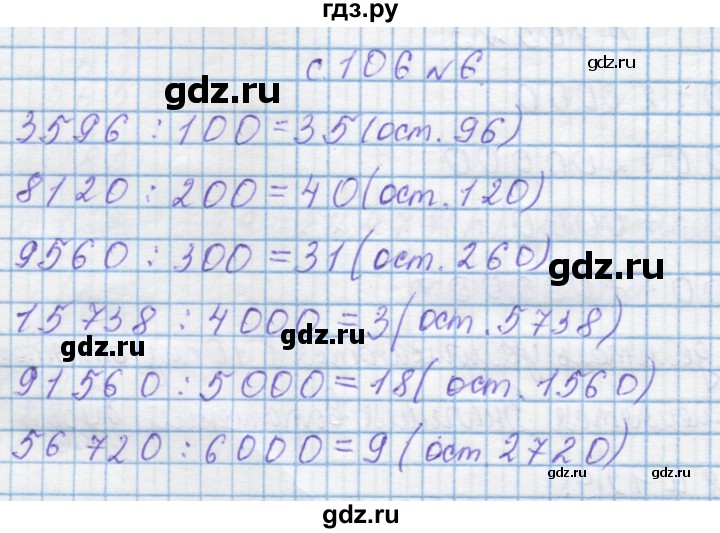 гдз.ру
с 106 №6.
gdz.ru
gdz.ru
3596 : 100 = 35 (ост. 96)
8120 : 200 = 40 (ост. 120)
9560 : 300 = 31 (ост. 260)
gdz.ru
15738 : 4000 = 3 (ост. 5738)
gdz.ru
gdz.ru
91560 : 5000 = 18 (ост. 1560)
56720 : 6000 = 9 (ост 2720)
gdz.ru
gdz.ru
gdz.ru
gdz.ru